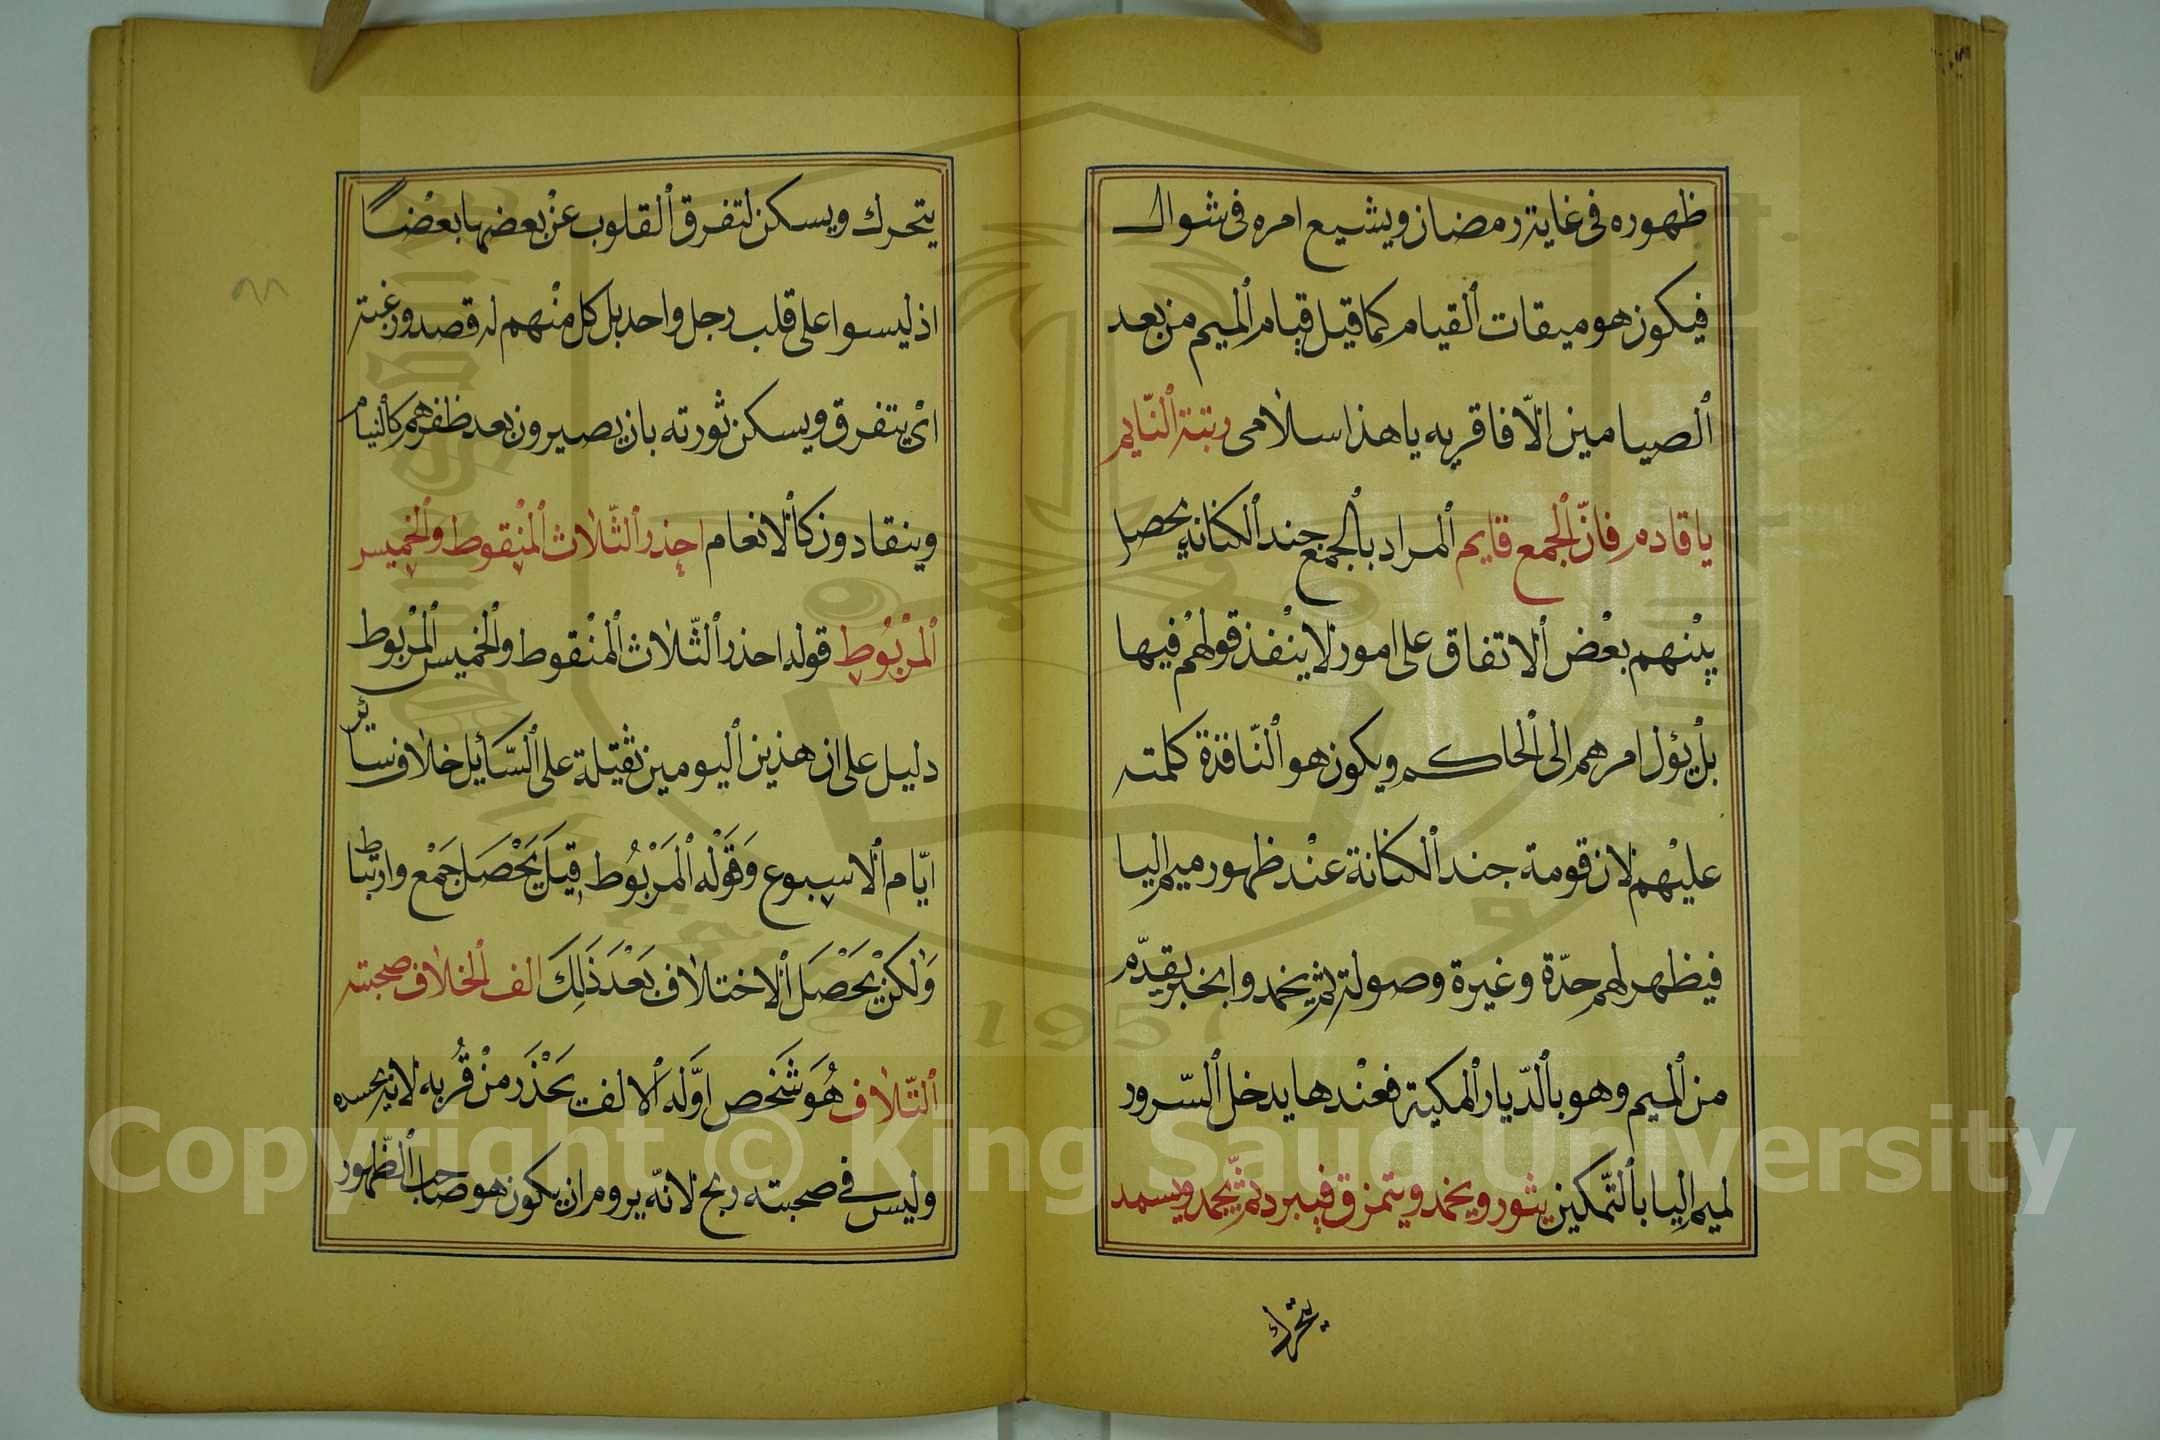 ظهوره فى غاية رمضان ويشيع امره فى شوال
فيكون هو ميقات القيام كما قيل قيام الميم من بعد
الصيامين الّا فاقر به يا هذا سلامى رتبة النّايم
يا قادم فانّ الجمع قايم المراد بالجمع جند الكنانه يحصل
بينهم بعْض الاتفاق على امور لا ينْفذ قولهم فيها
بلْ يؤل امرهم الى الحاكم ويكون هو النّافذة كلمته
عليْهم لان قومة جند الكنانة عنْد ظهور ميم اليا
فيظهر لهم حدّة وغيرة وصولة ثم يخمد وا بخبر يقدّم
من الميم وهو بالدّيار المكية فعنْدها يدخل السّرور
لميم اليا بالتّمكين يثور ويخمد ويتمزق فيبرد ثمّ يجمد ويسمد
يتحرك
يتحرك ويسكن لتفرق القلوب عنْ بعضها بعْضاً
اذ ليسوا على قلب رجل واحد بل كل منْهم له قصد ورغبته
اىْ يتفرق ويسكن ثورته بان يصيرون بعد ظفرهم كالنيام
وينقادون كالانعام احذر الثّلاث المنْقوط والخميس
المرْبُوط قوله احذر الثّلاث المنْقوط والخميس المرْبوط
دليل على ان هذين اليومين ثقيلة على السّايل خلاف سائر
ايّام الاسبوع وَقوْله المَرْبُوط قِيلَ يَحْصَل جَمْع وارتباط
وَلكنْ يحَْصَل الاختلاف بَعْدَ ذَلِكَ الف الخلاف صحبته
التّلاف هُوَ شَخص اوّله الالف يَحْذَر منْ قُربه لانه يحسده
وليس فى صحبته ربح لانّه يروم ان يكون هو صاحب الظّهور
Copyright © King Saud University
1957